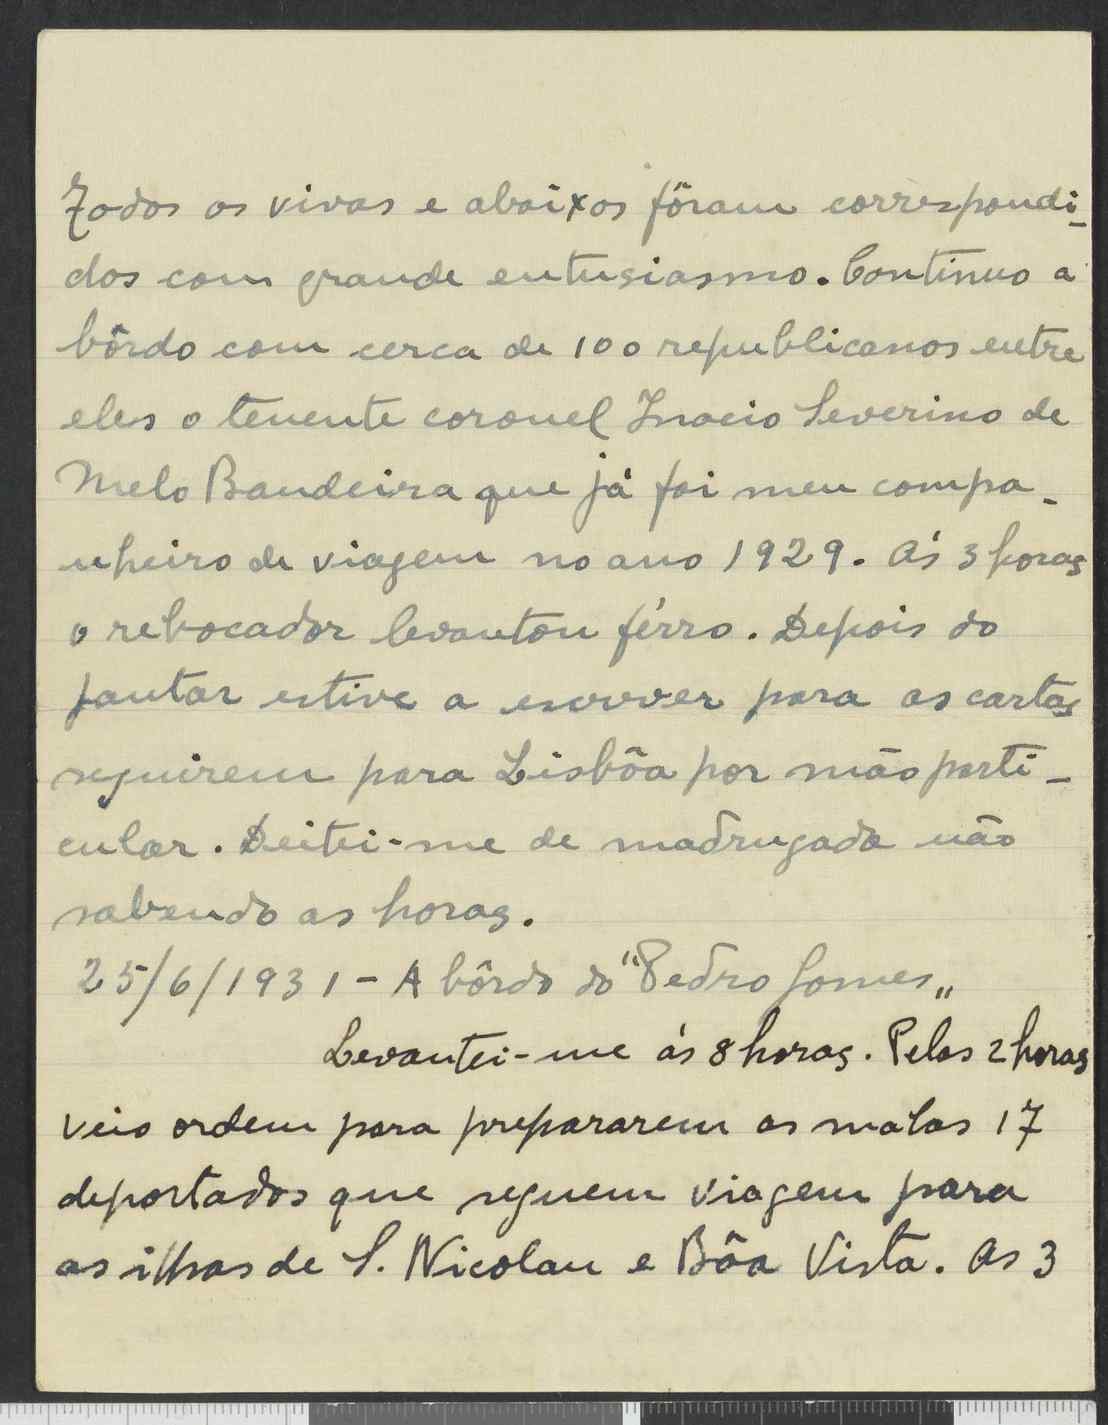 Todos os vivas e abaixos fôram correspondi-
dos com grande entusiasmo. Continuo a
bôrdo com cerca de 100 republicanos entre
eles o tenente coronel Inacio Severino de
Melo Bandeira que já foi meu compa-
nheiro de viagem no ano 1929. Ás 3 horas
o rebocador levantou férro. Depois do
jantar estive a escrever para as cartas
seguirem para Lisbôa por mão parti-
cular. Deitei-me de madrugada não
sabendo as horas.
25/6/1931 - A bôrdo do "Pedro Gomes„
Levantei-me ás 8 horas. Pelas 2 horas
veio ordem para prepararem as malas 17
deportados que seguem viagem para
as ilhas de S. Nicolau e Bôa Vista. As 3